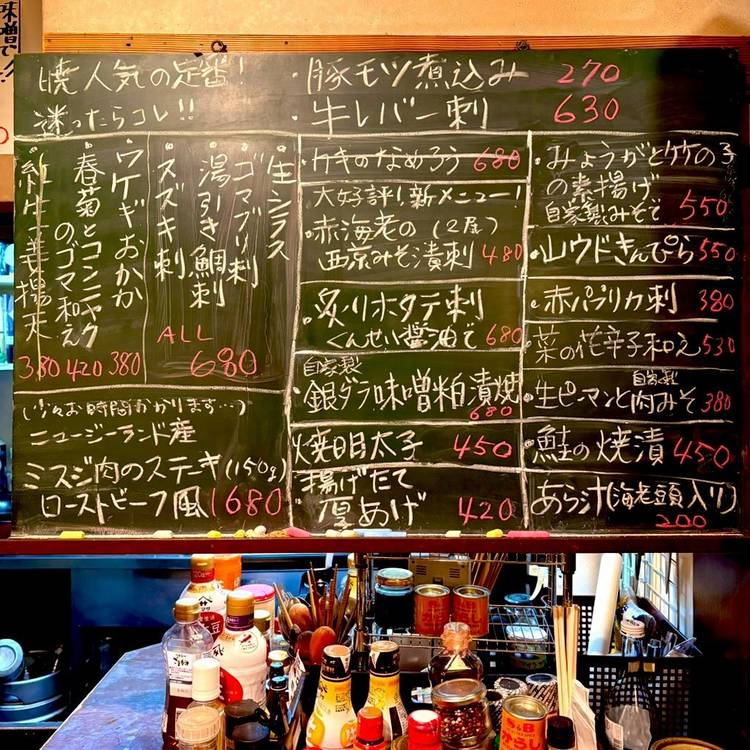 暁人気の定番!
迷ったらコレ!!
・豚モツ煮込み 270
・牛レバー刺 630
生シラス
ゴマブリ刺
湯引き鯛刺
スズキ刺
ALL 680
ウケギおかか 380
春菊とコンニャクのゴマ和え 420
紅生姜揚天 380
(少々お時間かかります…)
ニュージーランド産
ミスジ肉のステーキ(150g)
ローストビーフ風 1680
カキのなめろう 680
大好評!新メニュー!
・赤海老の(2尾)
西京みそ漬刺 480
・炙りホタテ刺
くんせい醤油で 680
自家製
・銀ダラ味噌粕漬焼
680
焼明太子 450
揚げたて
厚あげ 420
・みょうがとタケの子
の素揚げ
自家製みそで 550
・山ウドきんぴら 550
・赤パプリカ刺 380
・菜の花辛子和え 530
自家製
・生ピーマンと肉みそ 380
・鮭の焼漬 450
あら汁(海老頭入り)
200
S&B